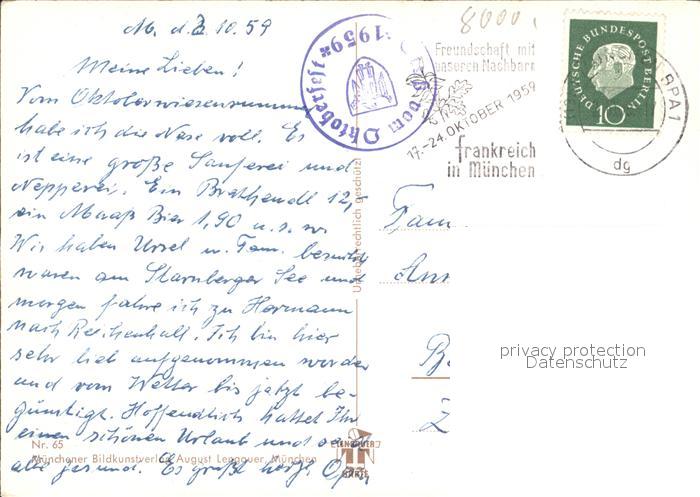 M. d. 2. 10. 59
Meine Lieben!
Vom Oktoberwiesenrummel
habe ich die Nase voll. Es
ist eine große Sauferei und
Nepperei. Ein Brathendl 12,-
ein Maaß Bier 1,90 u. s. w.
Wir haben Ursel u. Fam. besucht
waren am Starnberger See und
morgen fahre ich zu Hermann
nach Reichenhall. Ich bin hier
sehr lieb aufgenommen worden
und vom Wetter bis jetzt be-
günstigt. Hoffentlich hattet Ihr
einen schönen Urlaub und seid
alle gesund. Es grüßt herzl. Opa
Nr. 65
Münchener Bildkunstverlag August Lengauer, München
Urheberrechtlich geschützt
LENGAUER
KARTE
vom Oktoberfest
*1959*
8000
Freundschaft mit
unseren Nachbarn
17.-24. OKTOBER 1959
frankreich
in München
DEUTSCHE BUNDESPOST BERLIN
10
BPA 1
dg
Fam
An
B.
Z
privacy protection
Datenschutz